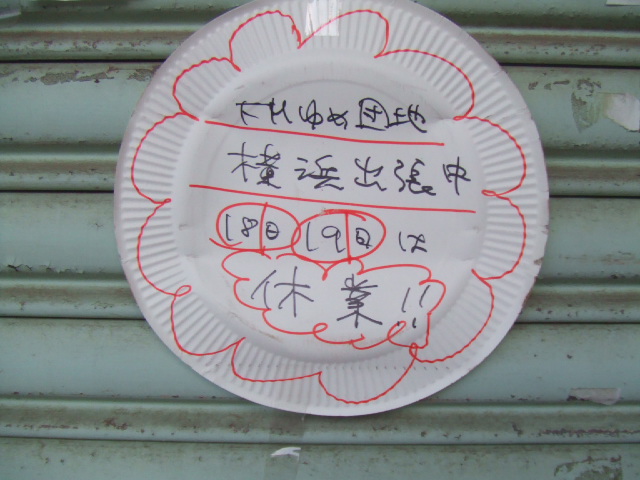 下Hゆめ団地
横浜出張中
18日19日は
休業!!